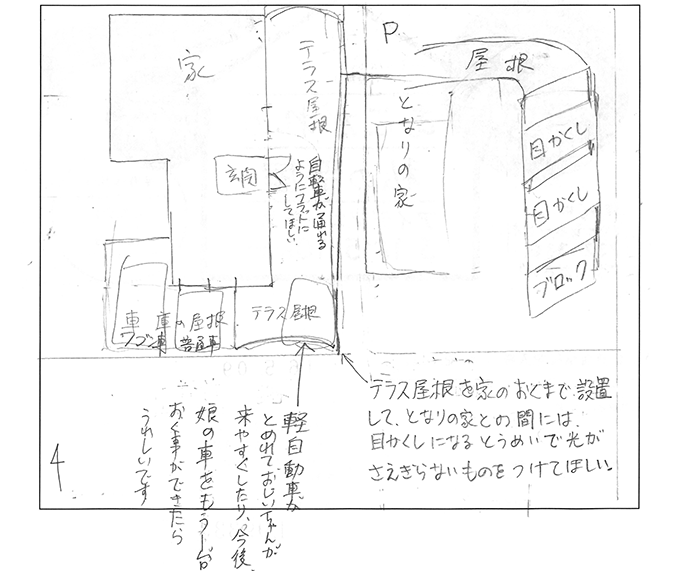 家
テラス屋根
P
屋根
目かくし
目かくし
ブロック
となりの家
玄関
自転車が通れる
ようにフラットに
してほしい
車庫の屋根
ワゴン車
普通車
テラス屋根
テラス屋根を家のおくまで設置
して、となりの家との間には、
目かくしになるとうめいで光が
さえぎらないものをつけてほしい。
軽自動車が
とめれておじいちゃんが
来やすくしたり、今後、
娘の車をもう一台
おく事ができたら
うれしいです